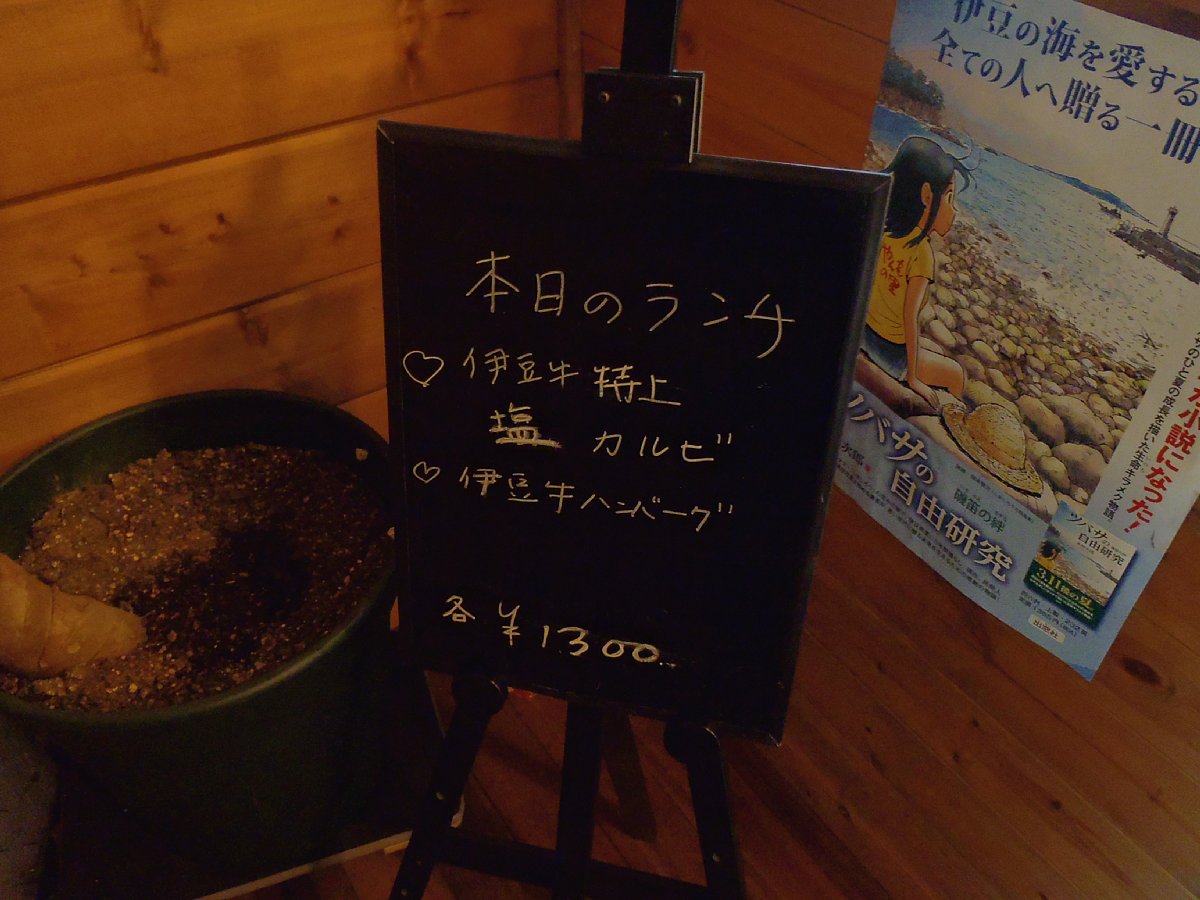 本日のランチ
♡ 伊豆牛 特上
塩 カルビ
♡ 伊豆牛ハンバーグ
各 ¥1300
伊豆の海を愛する
全ての人へ贈る一冊
小説になった!
ツバサの自由研究
磯笛の絆
ツバサの
自由研究
3.11後の夏
出窓社